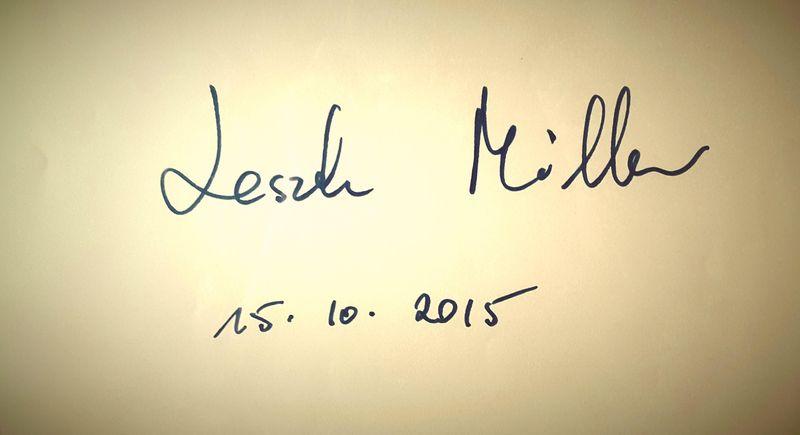 Leszek Miller
15. 10. 2015